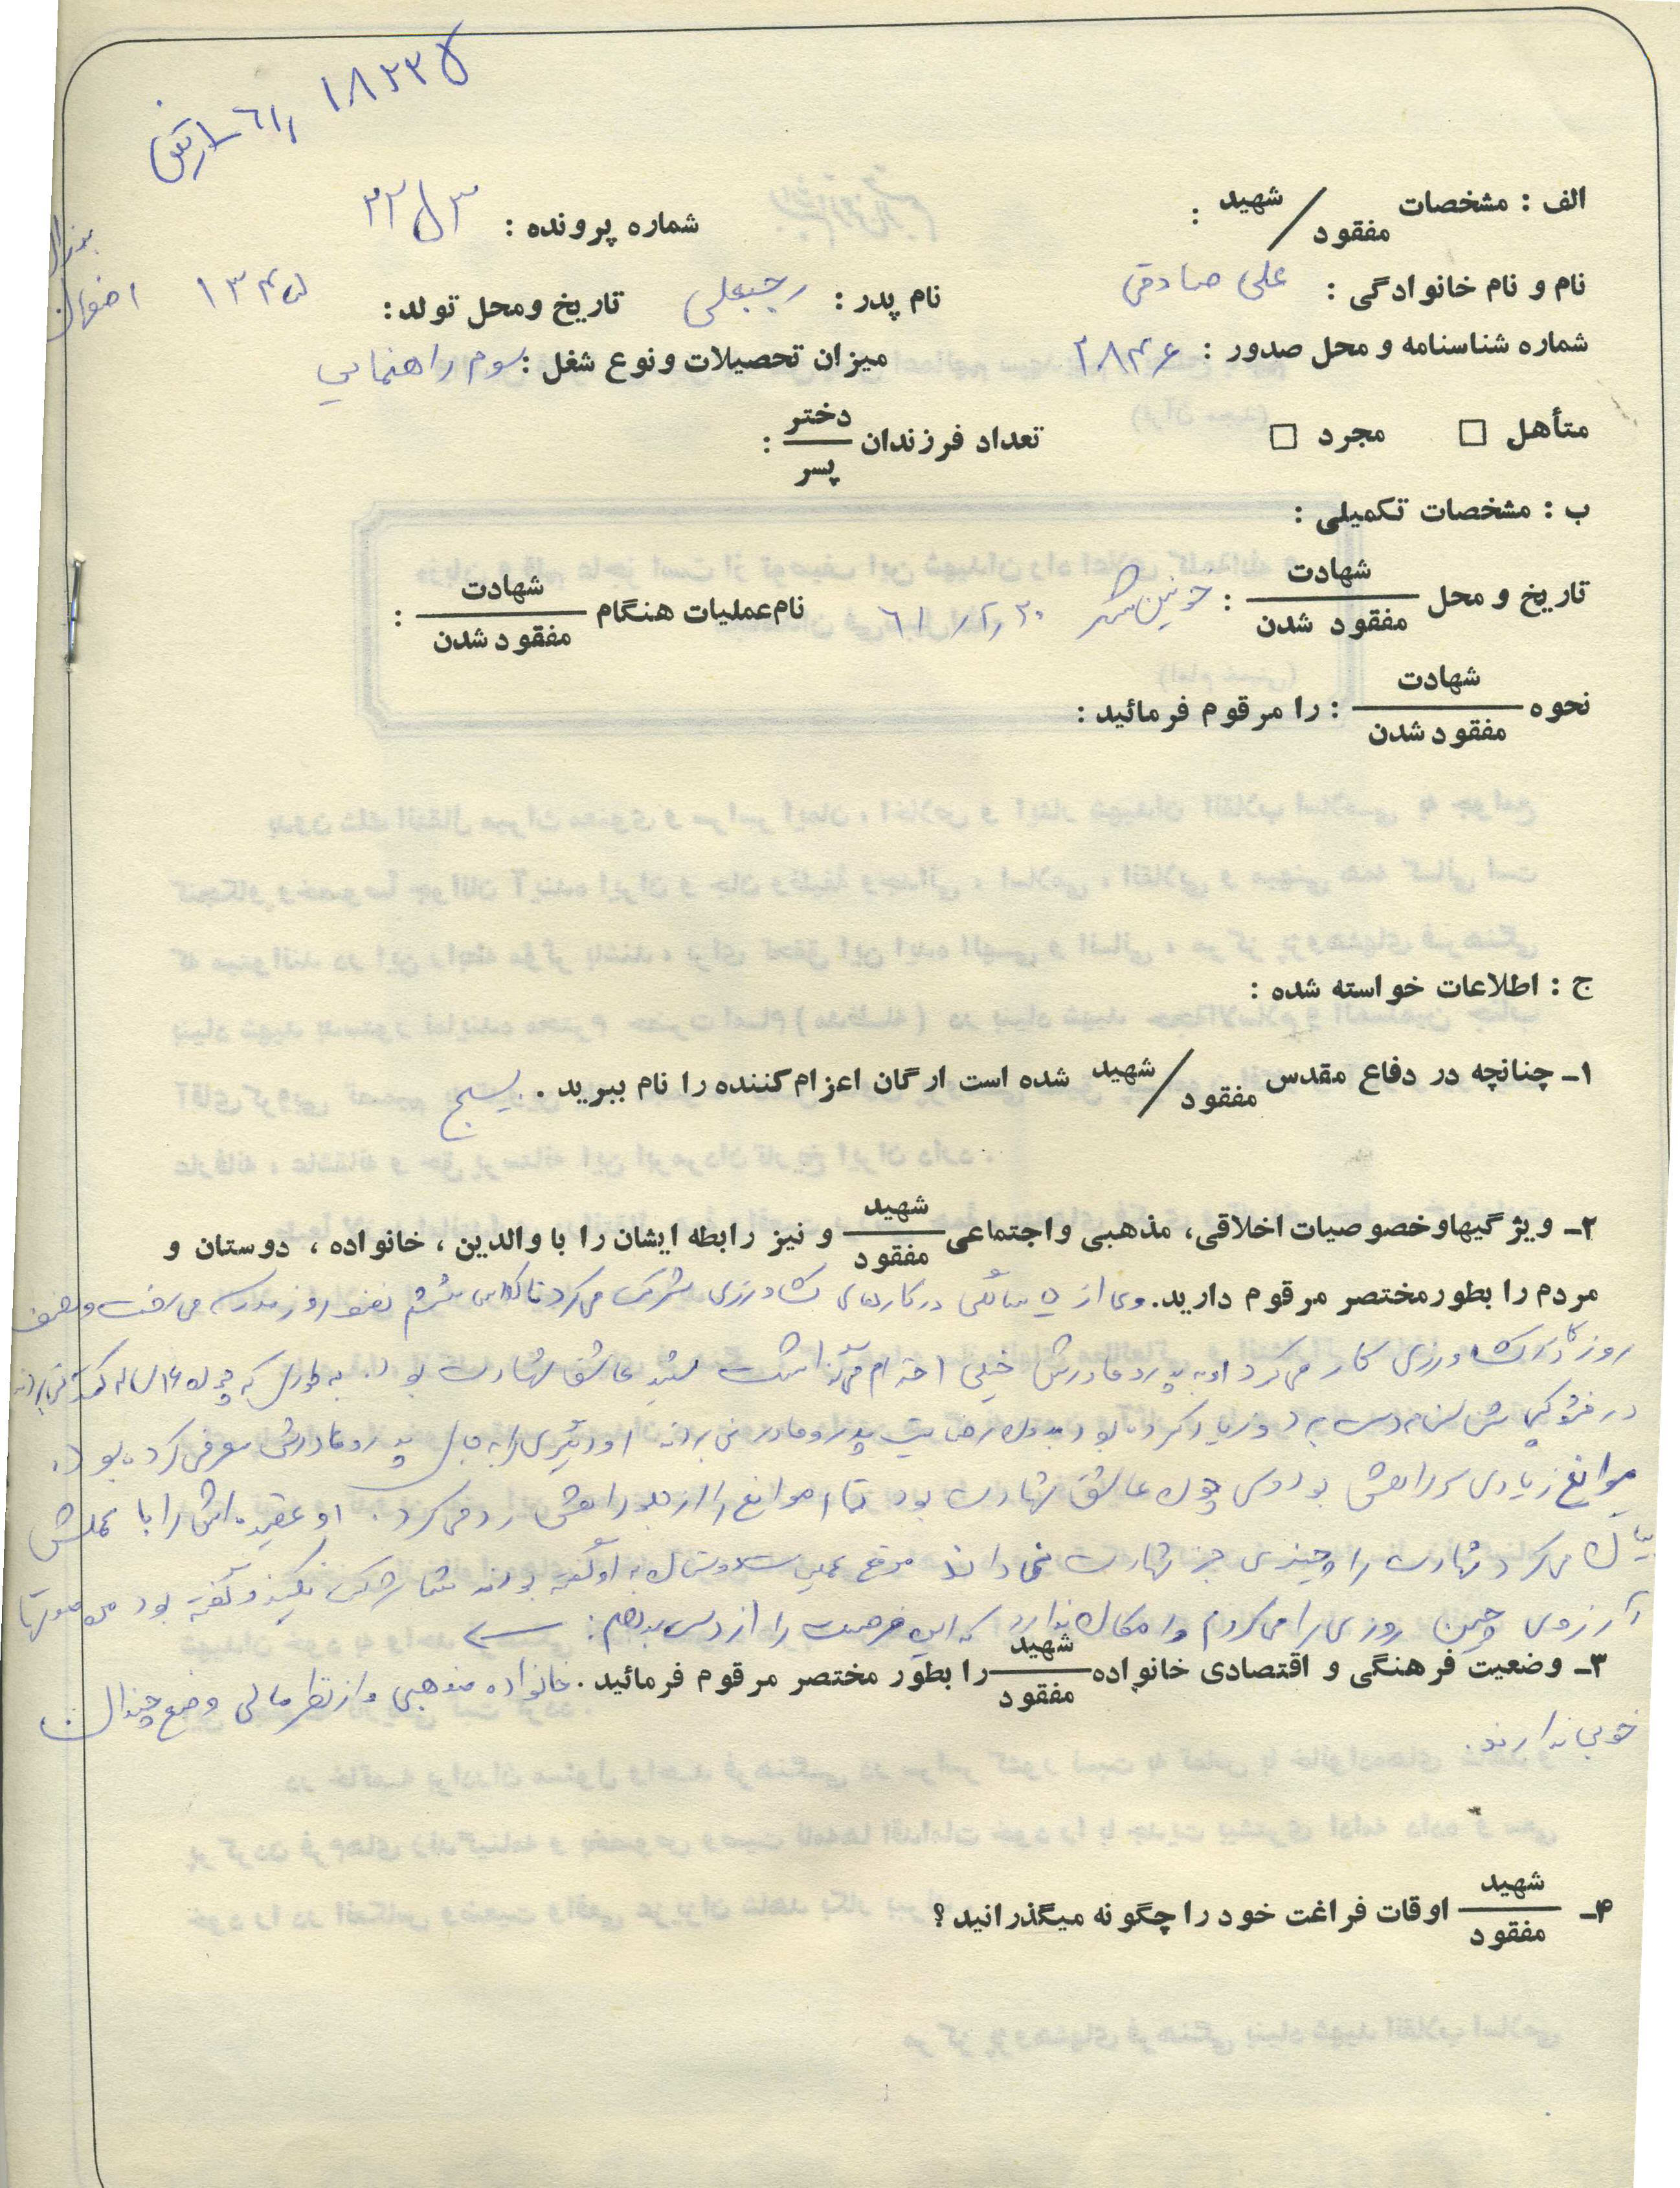 ۱۸۲۳۵
الف : مشخصات شهید / مفقود :
شماره پرونده :
نام و نام خانوادگی : علی صادقی نام پدر : رجبعلی تاریخ ومحل تولد : ۱۳۴۵ اصفهان
شماره شناسنامه و محل صدور : ۲۸۴۶ میزان تحصیلات ونوع شغل : سوم راهنمایی
متأهل □ مجرد □ تعداد فرزندان دختر / پسر :
ب : مشخصات تکمیلی :
تاریخ و محل شهادت / مفقود شدن : خونین شهر ۶۱/۲/۲۰ نام عملیات هنگام شهادت / مفقود شدن :
نحوه شهادت / مفقود شدن : را مرقوم فرمائید :
ج : اطلاعات خواسته شده :
۱ـ چنانچه در دفاع مقدس شهید / مفقود شده است ارگان اعزام کننده را نام ببرید . بسیج
۲ـ ویژگیهاوخصوصیات اخلاقی، مذهبی واجتماعی شهید / مفقود و نیز رابطه ایشان را با والدین ، خانواده ، دوستان و
مردم را بطورمختصر مرقوم دارید. وی از ۵ سالگی در کارهای کشاورزی شرکت می کرد تا کلاس ششم نصف روز مدرسه می رفت و نصف
روز کشاورزی کار می کرد او به پدر و مادرش خیلی احترام می گذاشت شهید عاشق شهادت بود. به طوری که چون ۱۶ ساله
در فتوکپی شناسنامه دست برد و زیاد کرده بود بدون رضایت پدر و مادر نمی بردند او دیگری را به جای پدر و مادرش معرفی کرده بود.
موانع زیادی سر راهش بود ولی چون عاشق شهادت بود تمام موانع را از جلو راهش رد می کرد. او عقیده اش را با عملش
بیان می کرد شهادت را چیزی جز شهادت نمی داند موقع عملیات دوستان به او گفته بودند شما شرکت نکنید و گفته بود من مدتها
آرزوی چنین روزی را می کردم و امکان ندارد که این فرصت را از دست بدهم: ←
۳ـ وضعیت فرهنگی و اقتصادی خانواده شهید / مفقود را بطور مختصر مرقوم فرمائید . خانواده مذهبی و از نظر مالی وضع چندان
خوبی ندارند.
۴ـ شهید / مفقود اوقات فراغت خود را چگونه میگذرانید ؟